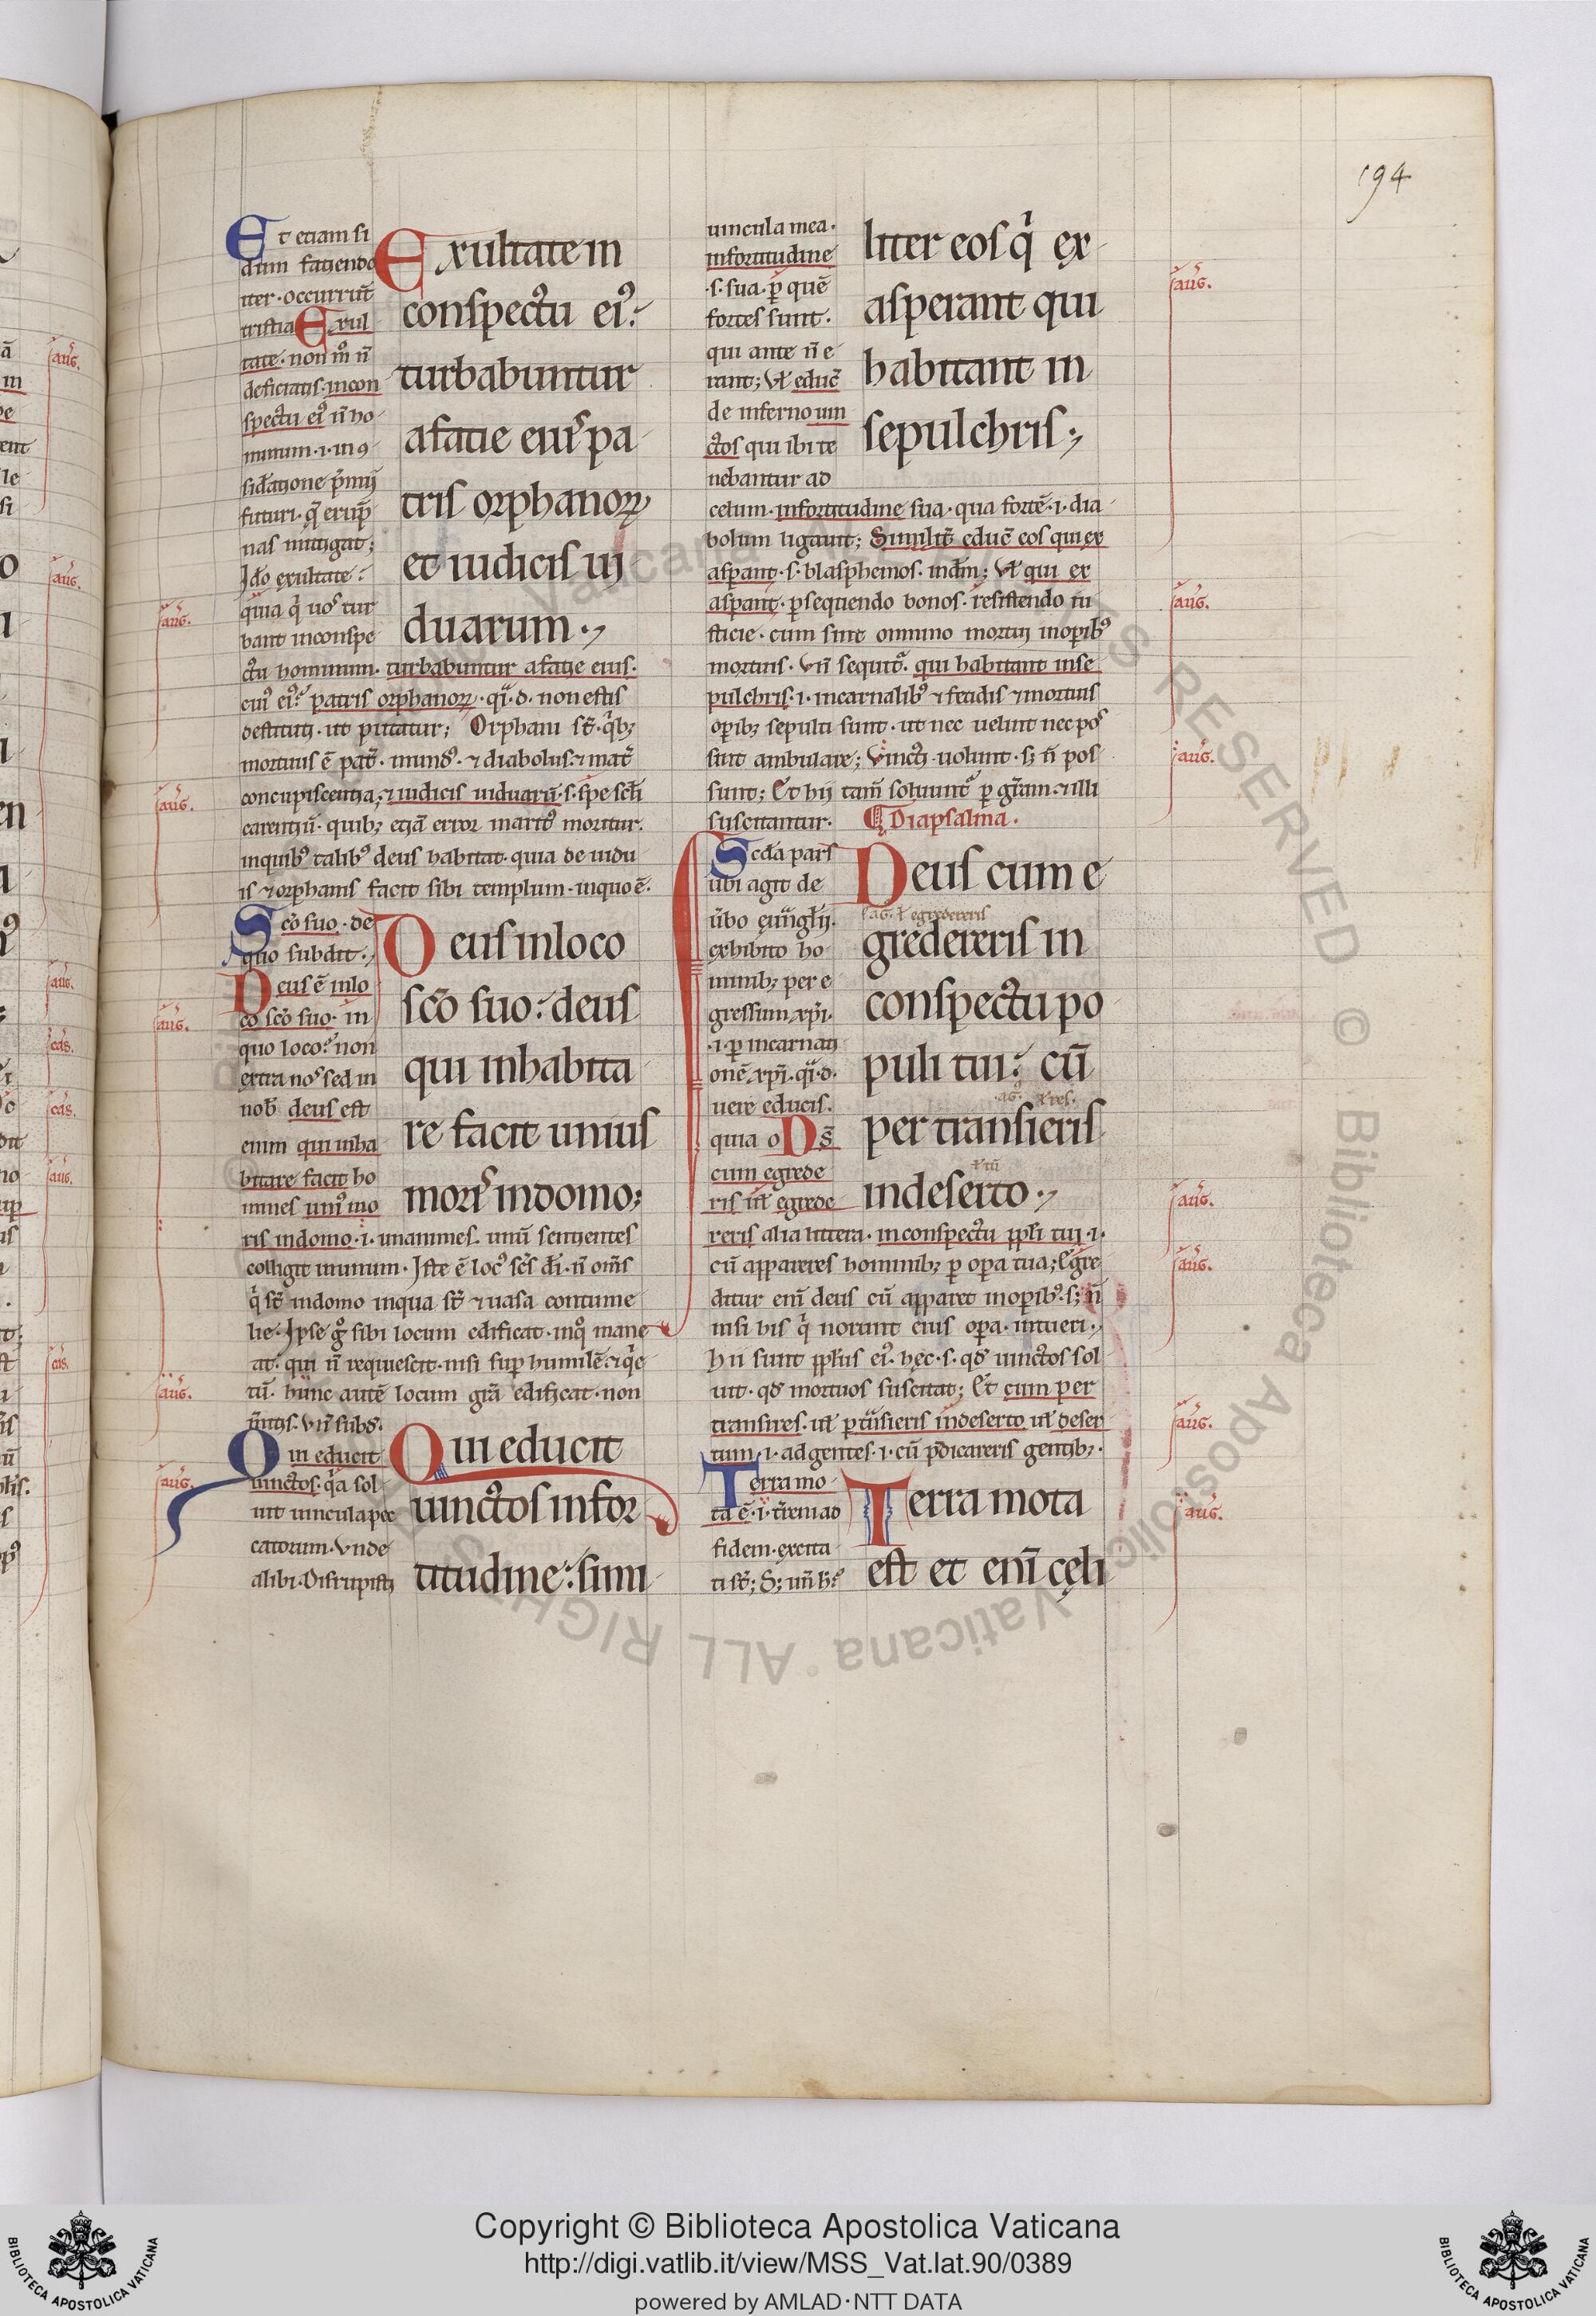 194
Et etiam si
dum faciendo
iter· occurrūt
tristia Exul
tate· non m̊ ñ
deficiatis· incon
spectu eiꝰ ñ ho
minum ·i· in ꝯ
siďatione p̄mij
futuri· q̄ erūp̄
nas mitigat;
Iďo exultate·
quia q̇ uos tur
bant inconspe
ctu hominum· turbabuntur afacie eius·
cuiꝰ eiꝰ? patris orphanoꝝ· qͣ·d· non estis
destituti· ut putatur; Orphani st̄ q̇bꝫ
mortuus ē pat̄· mundꝰ· ⁊ diabolus· ⁊ mat̄
concupiscentia; ⁊ iudicis uiduarū ·s· spe scłi
carentiū· quibꝫ etiā error maritꝰ moritur·
inquibꝰ talibꝰ deus habitat· quia de uidu
is ⁊ orphanis facit sibi templum· inquo ē·
Exultate in
conspectu eiꝰ:
turbabuntur
afacie eiusˢ pa
tris orphanoꝝ
et iudicis ui
duarum·
Scō suo· de
quo subdit·
Deus ē inlo
co scō suo· in
quo loco? non
extra nos sed in
nob̄ deus est
enim qui inha
bitare facit ho
mines uniꝰ mo
ris indomo ·i· unanimes· unū sentientes
colligit inunum· Iste ē locꝰ scs̄ dī· ñ oms̄
q̇ st̄ indomo inqua st̄ ⁊ uasa contume
lie· Ipse g̊ sibi locum edificat· inq̊ mane
at· qui ñ requiescit· nisi sup humilē ⁊ q̇e
tū· hunc autē locum grā edificat· non
Deus inloco
scō suo: deus
qui inhabita
re facit unius
morisˢ indomo;
Qui educit
uinctos· q̇a sol
uit uincula pec
catorum· Vnde
alibi· Disrupisti
Qui educit
uinctos infor
titudine: simi
uincula mea·
infortitudine
·s· sua· ꝑ quē
fortes sunt·
qui ante ñ e
rant; Vł educ̄
de inferno uin
ctos qui ibi te
nebantur ad
celum· infortitudine sua· qua fortē ·i· dia
bolum ligauit; Similit̄ educ̄ eos qui ex
asꝑant ·s· blasphemos· indm̄; Vł qui ex
asꝑant· ꝑsequendo bonos· resistendo iu
sticie· cum sint omnino mortui inoꝑibꝰ
mortuis· Vñ sequit̄· qui habitant inse
pulchris ·i· incarnalibꝰ ⁊ fetidis ⁊ mortuis
oꝑibꝫ sepulti sunt· ut nec uelint nec pos
sint ambulare; Vincti uolunt· sꝫ ñ pos
sunt; Et hij tam̄ soluunt̄ ꝑ grām ⁊ illi
suscitantur·
liter eos q̇ ex
asperant qui
habitant in
sepulchris;
Diapsalma·
Scďa pars
ubi agit de
ūbo euūglij·
exhibito ho
minibꝫ per e
gressum xp̄i·
·i· ꝑ incarnati
onē xp̄i· qͣ·d·
uere educis·
quia o Ds̄
cum egrede
ris ut̄ egrede
reris alia littera· inconspectu ppłi tui ·i·
cū appareres hominibꝫ ꝑ opera tua; Egre
ditur enī deus cū apparet inoꝑibꝰ· sꝫ ñ
nisi his q̇ norunt eius oꝑa· intueri·
Hii sunt ppłus eiꝰ· hęc ·s· qď uinctos sol
uit· qď mortuos suscitat; Et cum per
transires· ut̄ ꝑtn̄sieris indeserto ut̄ deser
tum ·i· ad gentes ·i· cū p̄dicareris gentibꝫ·
Deus cum e
gredereris in
conspectu po
puli tui: cū
per transieris
indeserto·
Terra mo
ta ē ·i· t̄reni ad
fidem· excita
ti st̄;
Terra mota
est et enī cęli
aug̅·
aug̅·
aug̅·
aug̅·
aug̅·
aug̅·
aug̅·
aug̅·
aug̅·
aug̅·
aug̅·
aug̅·
Copyright © Biblioteca Apostolica Vaticana
http://digi.vatlib.it/view/MSS_Vat.lat.90/0389
powered by AMLAD·NTT DATA
BIBLIOTECA APOSTOLICA VATICANA
BIBLIOTECA APOSTOLICA VATICANA